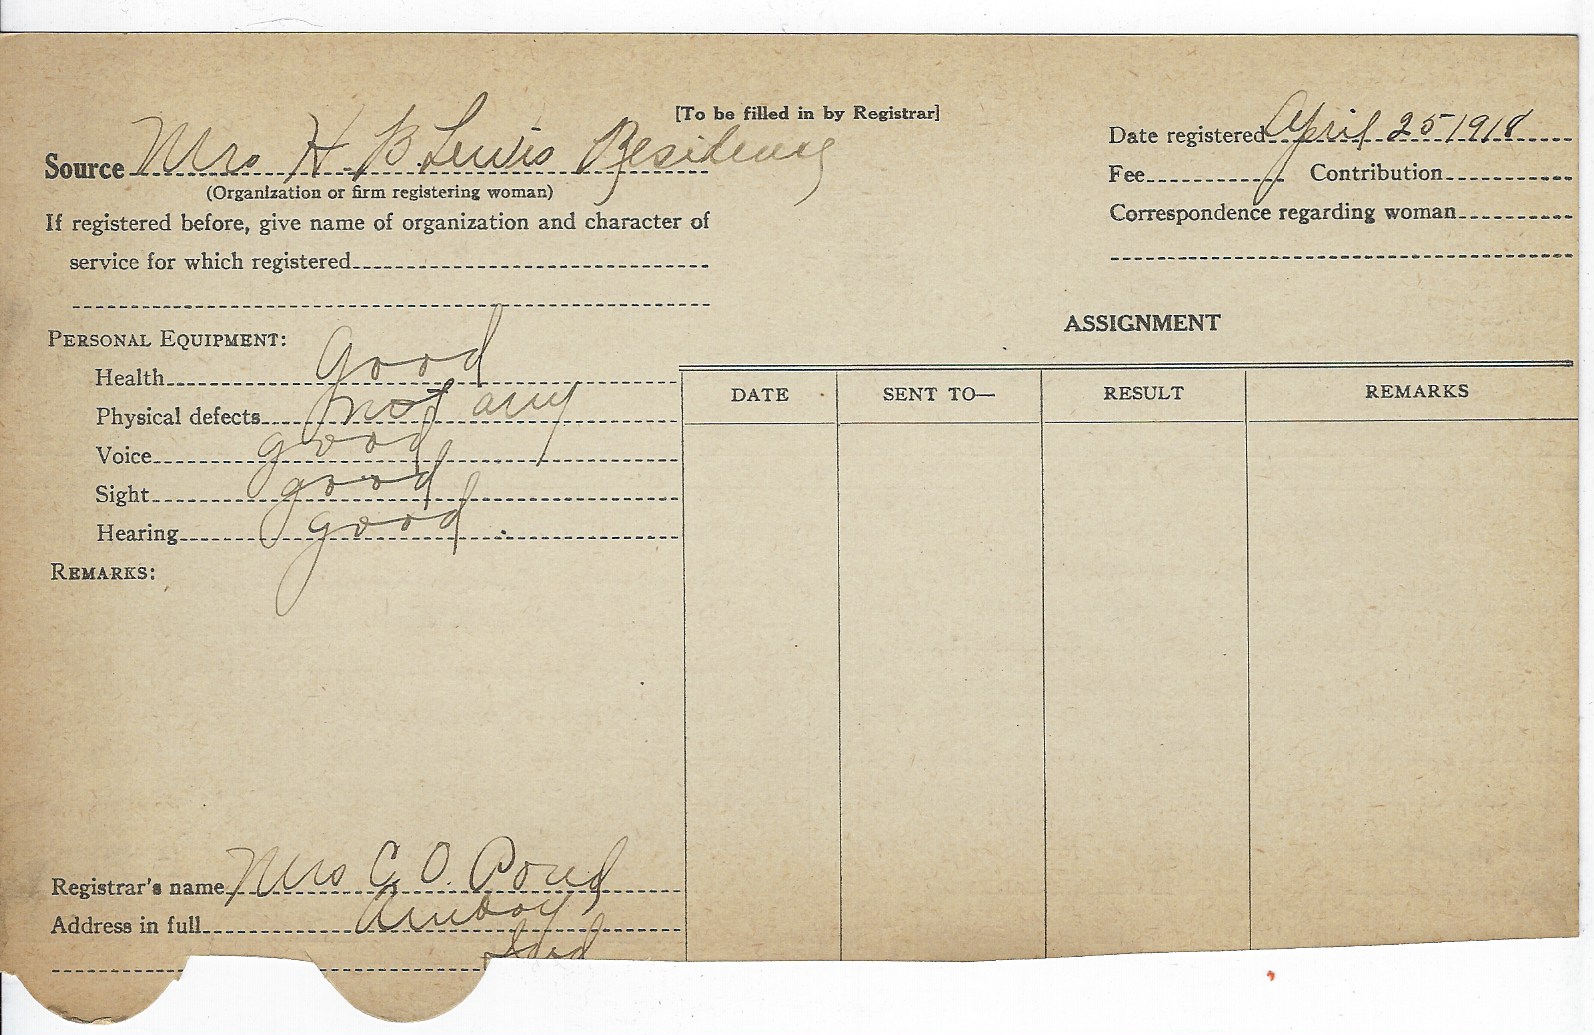 [To be filled in by Registrar]
Source Mrs H. B. Lewis Residence
(Organization or firm registering woman)
If registered before, give name of organization and character of
service for which registered
Date registered April 25 1918
Fee Contribution
Correspondence regarding woman
PERSONAL EQUIPMENT:
Health good
Physical defects not any
Voice good
Sight good
Hearing good
REMARKS:
ASSIGNMENT
DATE SENT TO— RESULT REMARKS
Registrar's name Mrs C. O. Pond
Address in full Amboy
Ind